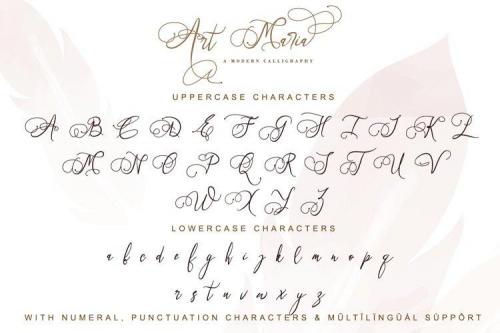 Art Maria
A MODERN CALLIGRAPHY
UPPERCASE CHARACTERS
A B C D E F G H I J K L
M N O P Q R S T U V
W X Y Z
LOWERCASE CHARACTERS
a b c d e f g h i j k l m n o p q
r s t u v w x y z
WITH NUMERAL, PUNCTUATION CHARACTERS & MÜLTÏLÏNGÜÁL SÚPPÖRT